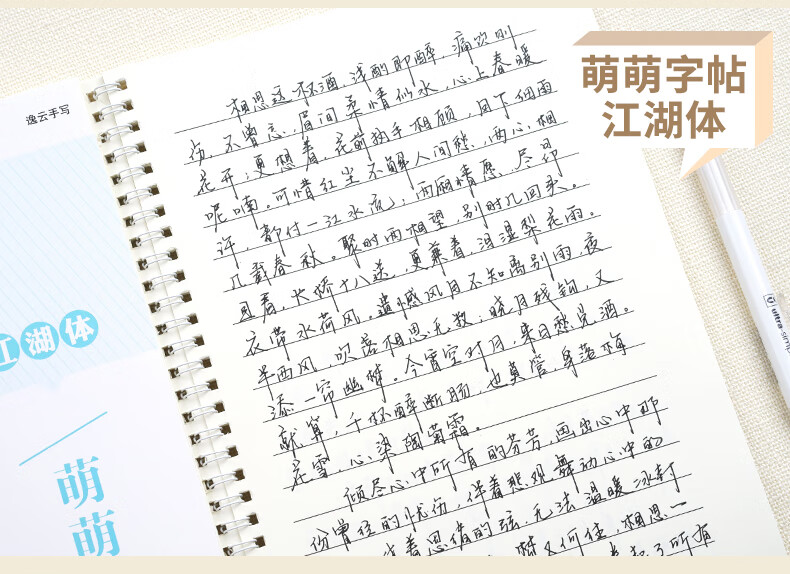 萌萌字帖
江湖体
逸云手写
江湖体
萌萌
ultra-simp
相思这杯酒，浅酌即醉，痛饮则
伤，不曾忘，眉间柔情似水，心上春暖
花开；更想着，花前执手相顾，月下细雨
呢喃。可惜红尘不解人间愁，两心相
许，都付一江水流；两厢情愿，尽印
几载春秋。聚时两相望，别时几回头。
思着，长桥十八送，更兼着，泪湿梨花雨。
衣带水荷风。遗憾风月不知离别雨，夜
半西风，吹落相思无数；晓月残钩，又
添一帘幽梦。今宵空对月，来日愁见酒。
就算，千杯醉断肠，也莫管，身落梅
花雪，心染菊霜。
倾尽心中所有的芬芳，画出心中那
份曾经的忧伤，伴着悲观舞动心中的
着思绪的弦，无法温暖冰封
又何佳，相思一
了所有